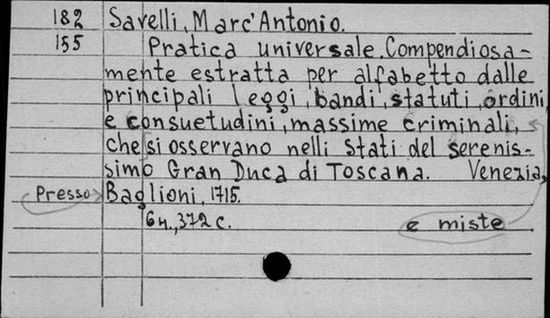 182 Savelli, Marc'Antonio.
155 Pratica universale. Compendiosa-
mente estratta per alfabetto dalle
principali leggi, bandi, statuti, ordini
e consuetudini, massime criminali,
che si osservano nelli Stati del serenis-
simo Gran Duca di Toscana. Venezia,
Presso Baglioni, 1715.
6 n., 372 c. e miste